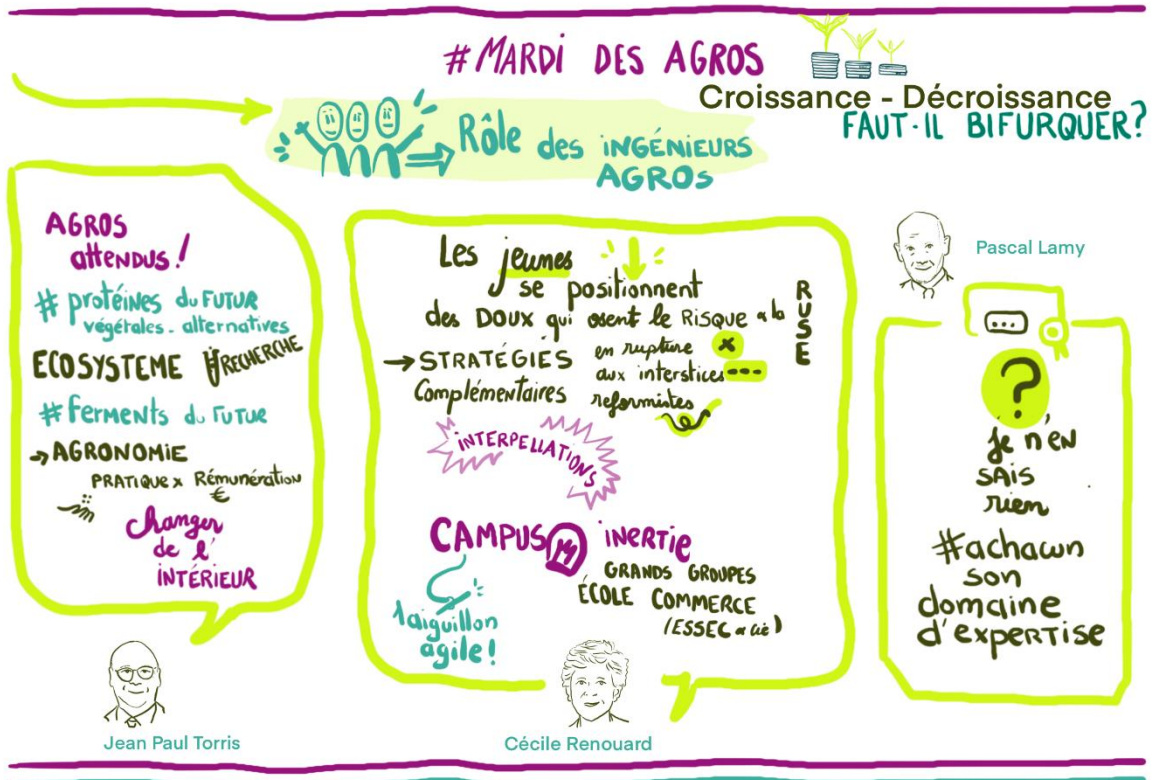 #MARDI DES AGROS
Croissance - Décroissance
FAUT-IL BIFURQUER?
Rôle des INGÉNIEURS
AGROS
AGROS
attendus!
# protéines du FUTUR
végétales - alternatives
ECOSYSTEME # RECHERCHE
# Ferments du FUTUR
→ AGRONOMIE
PRATIQUE x Rémunération
€
changer
de l'
INTÉRIEUR
Jean Paul Torris
Les jeunes
se positionnent
des DOUX qui osent le RISQUE & la
RUSE
→ STRATÉGIES
Complémentaires
en rupture
aux interstices
reformistes
INTERPELLATIONS
CAMPUS
inertie
GRANDS GROUPES
ÉCOLE COMMERCE
(ESSEC & Cie)
1 aiguillon
agile!
Cécile Renouard
Pascal Lamy
?
je n'en
sais
rien
#achacun
son
domaine
d'expertise